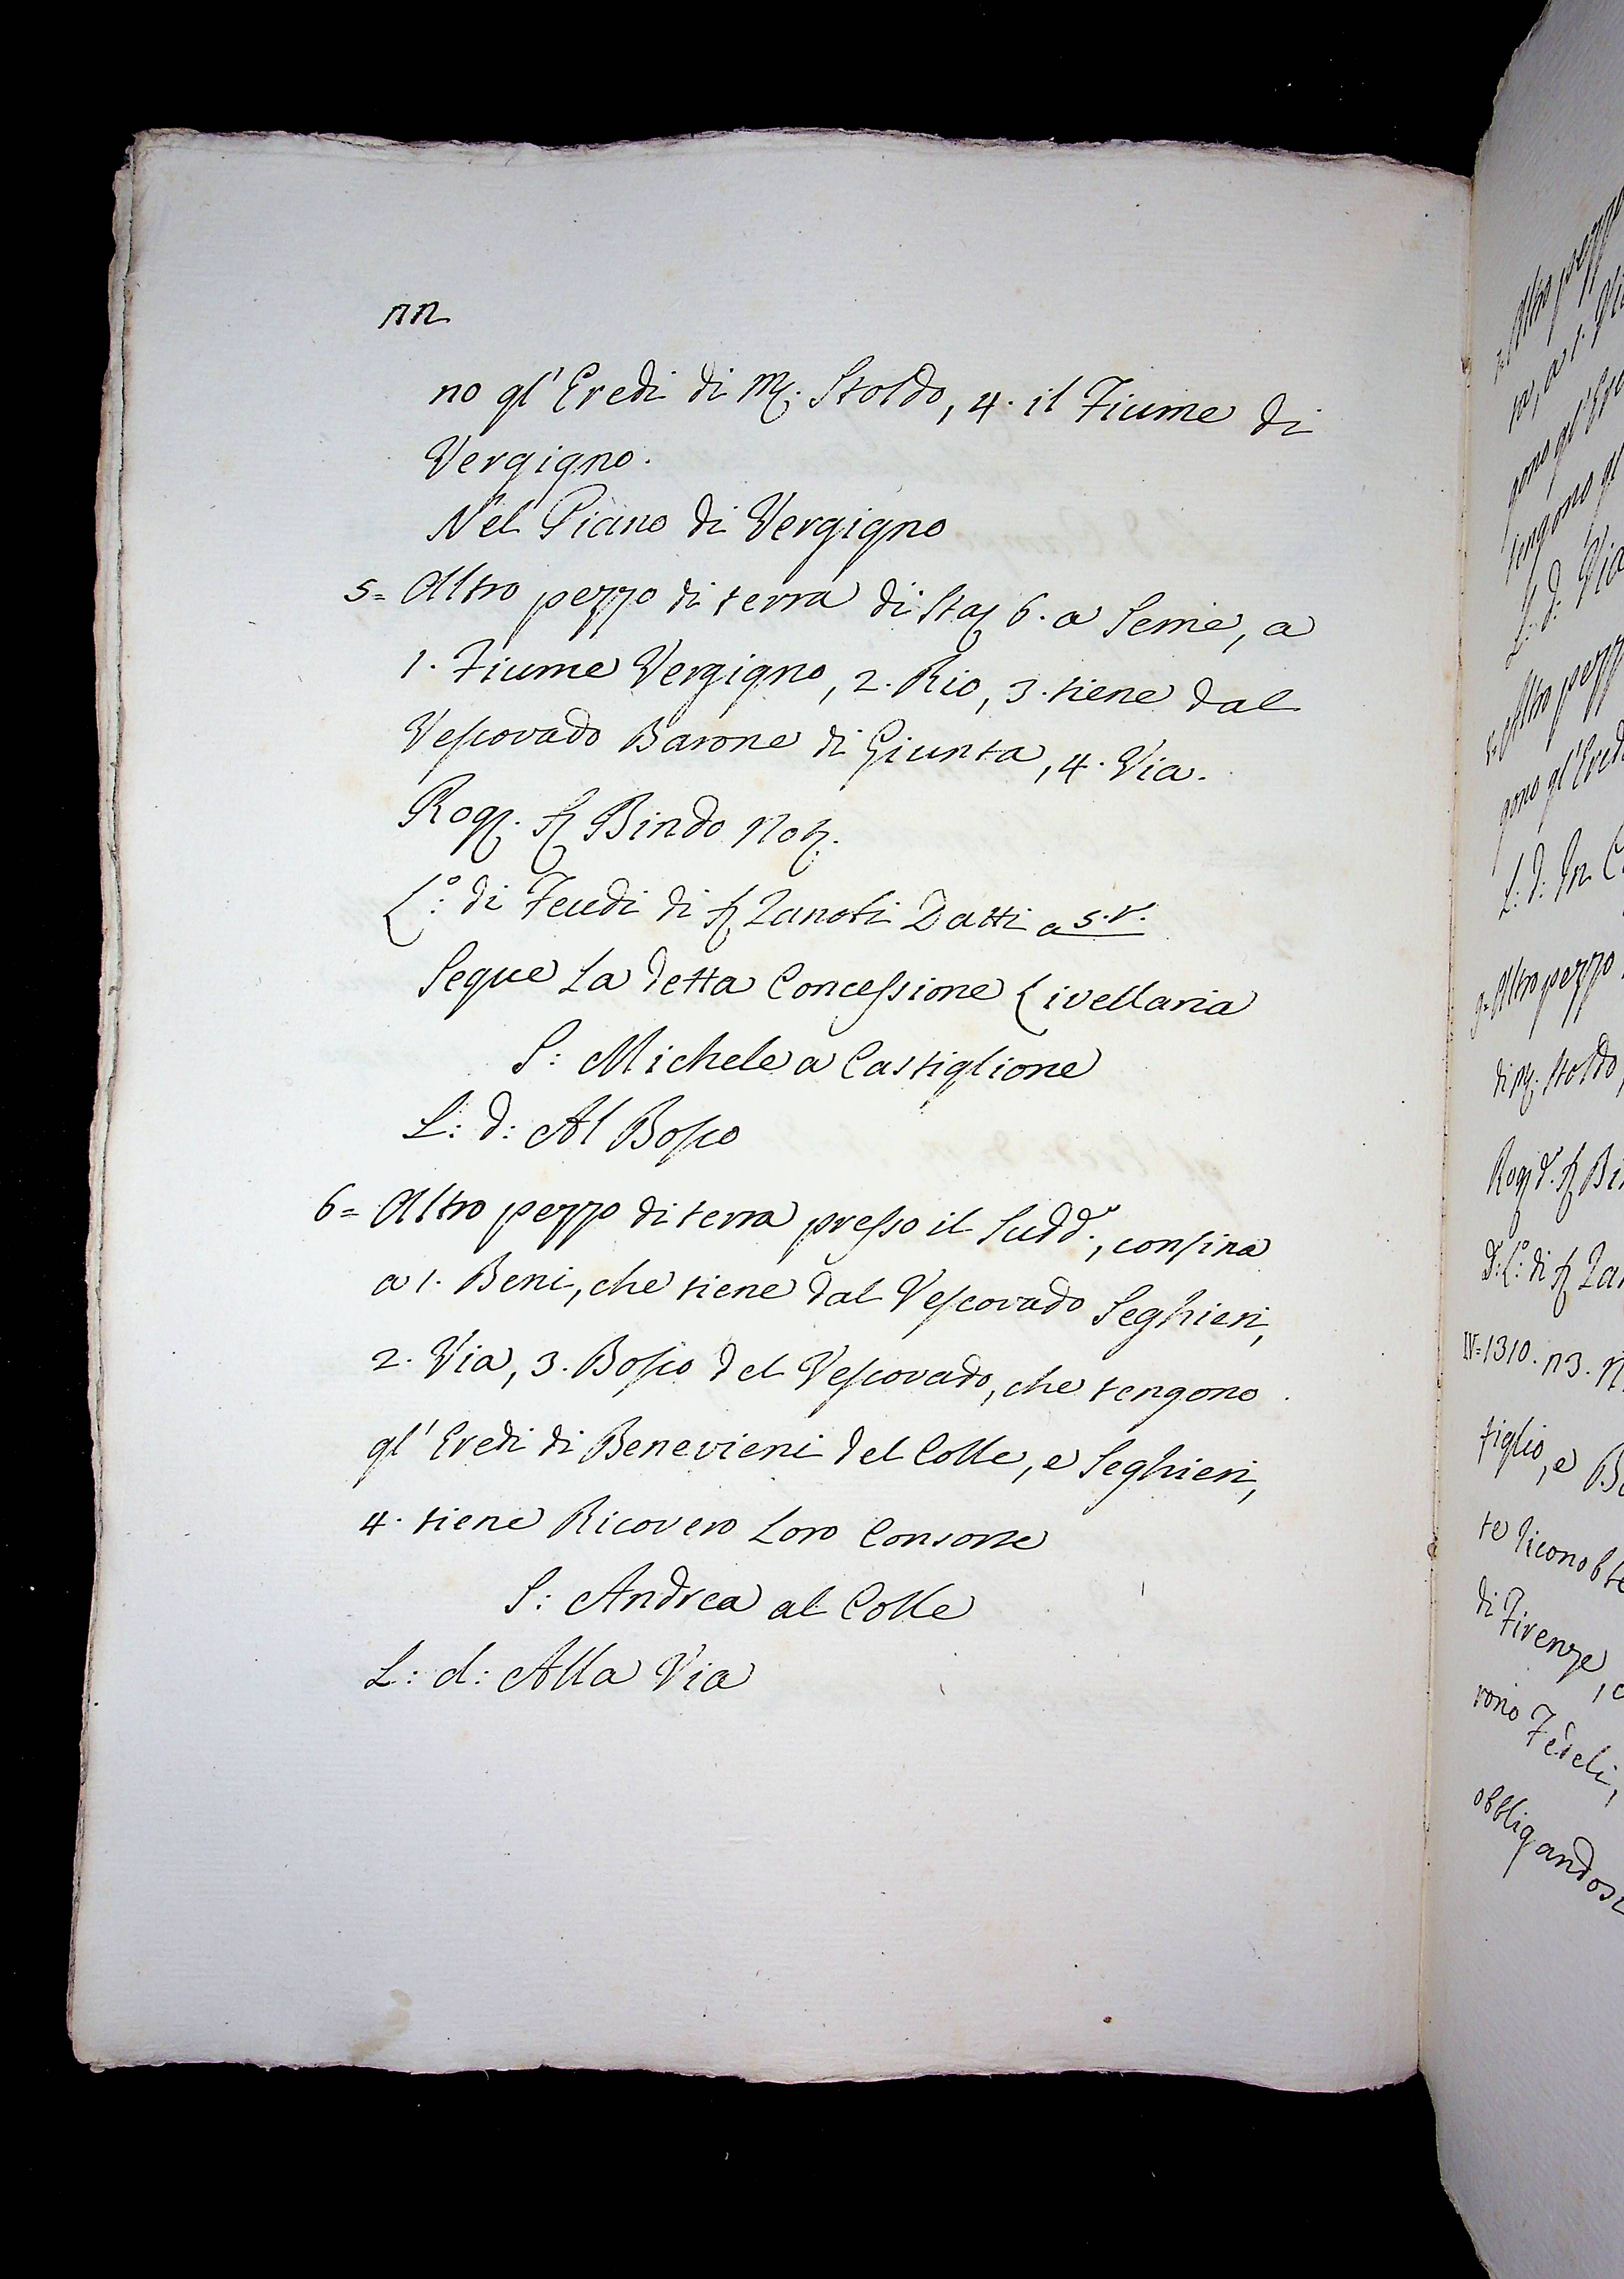 no gl' Eredi di M. Stoldo, 4. il Fiume di
Vergigno.
Nel Piano di Vergigno
5= Altro pezzo di terra di Sta 6. a Seme, a
1. Fiume Vergigno, 2. Rio, 3. tiene dal
Vescovado Barone di Giunta, 4. Via.
Rog. S Bindo Not.
L:º di Feudi di S Zanobi Datti a 5.r.
Segue La detta Concessione Livellaria
S: Michele a Castiglione
L: d: Al Bosco
6= Altro pezzo di terra presso il Sudd.º, confina
a 1. Beni, che tiene dal Vescovado Seghieri,
2. Via, 3. Bosco del Vescovado, che tengono
gl' Eredi di Benevieni del Colle, e Seghieri,
4. tiene Ricovero Loro Consorte
S: Andrea al Colle
L: d: Alla Via
Altro pezzo
L: d: Via
Altro pezzo
gono gl' Ered
L: d: In
9= Altro pezzo
di M. Stoldo,
IV= 1310. n3.
figlio, e
di Firenze,
Fedeli,
obbligandosi